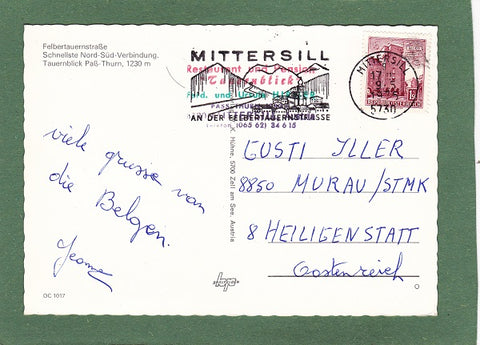 Felbertauernstraße
Schnellste Nord-Süd-Verbindung.
Tauernblick Paß-Thurn, 1230 m
MITTERSILL
Restaurant und Pension
Tauernblick
und
AN DER FELBERTAUERNSTRASSE
(065 62) 34 6 15
MITTERSILL
17
5730
viele grusse van
die Belgen.
Jerome
K. Hühne, 5700 Zell am See, Austria
GUSTI ILLER
8850 MURAU/STMK
8 HEILIGENSTATT
Oostenreich
DC 1017